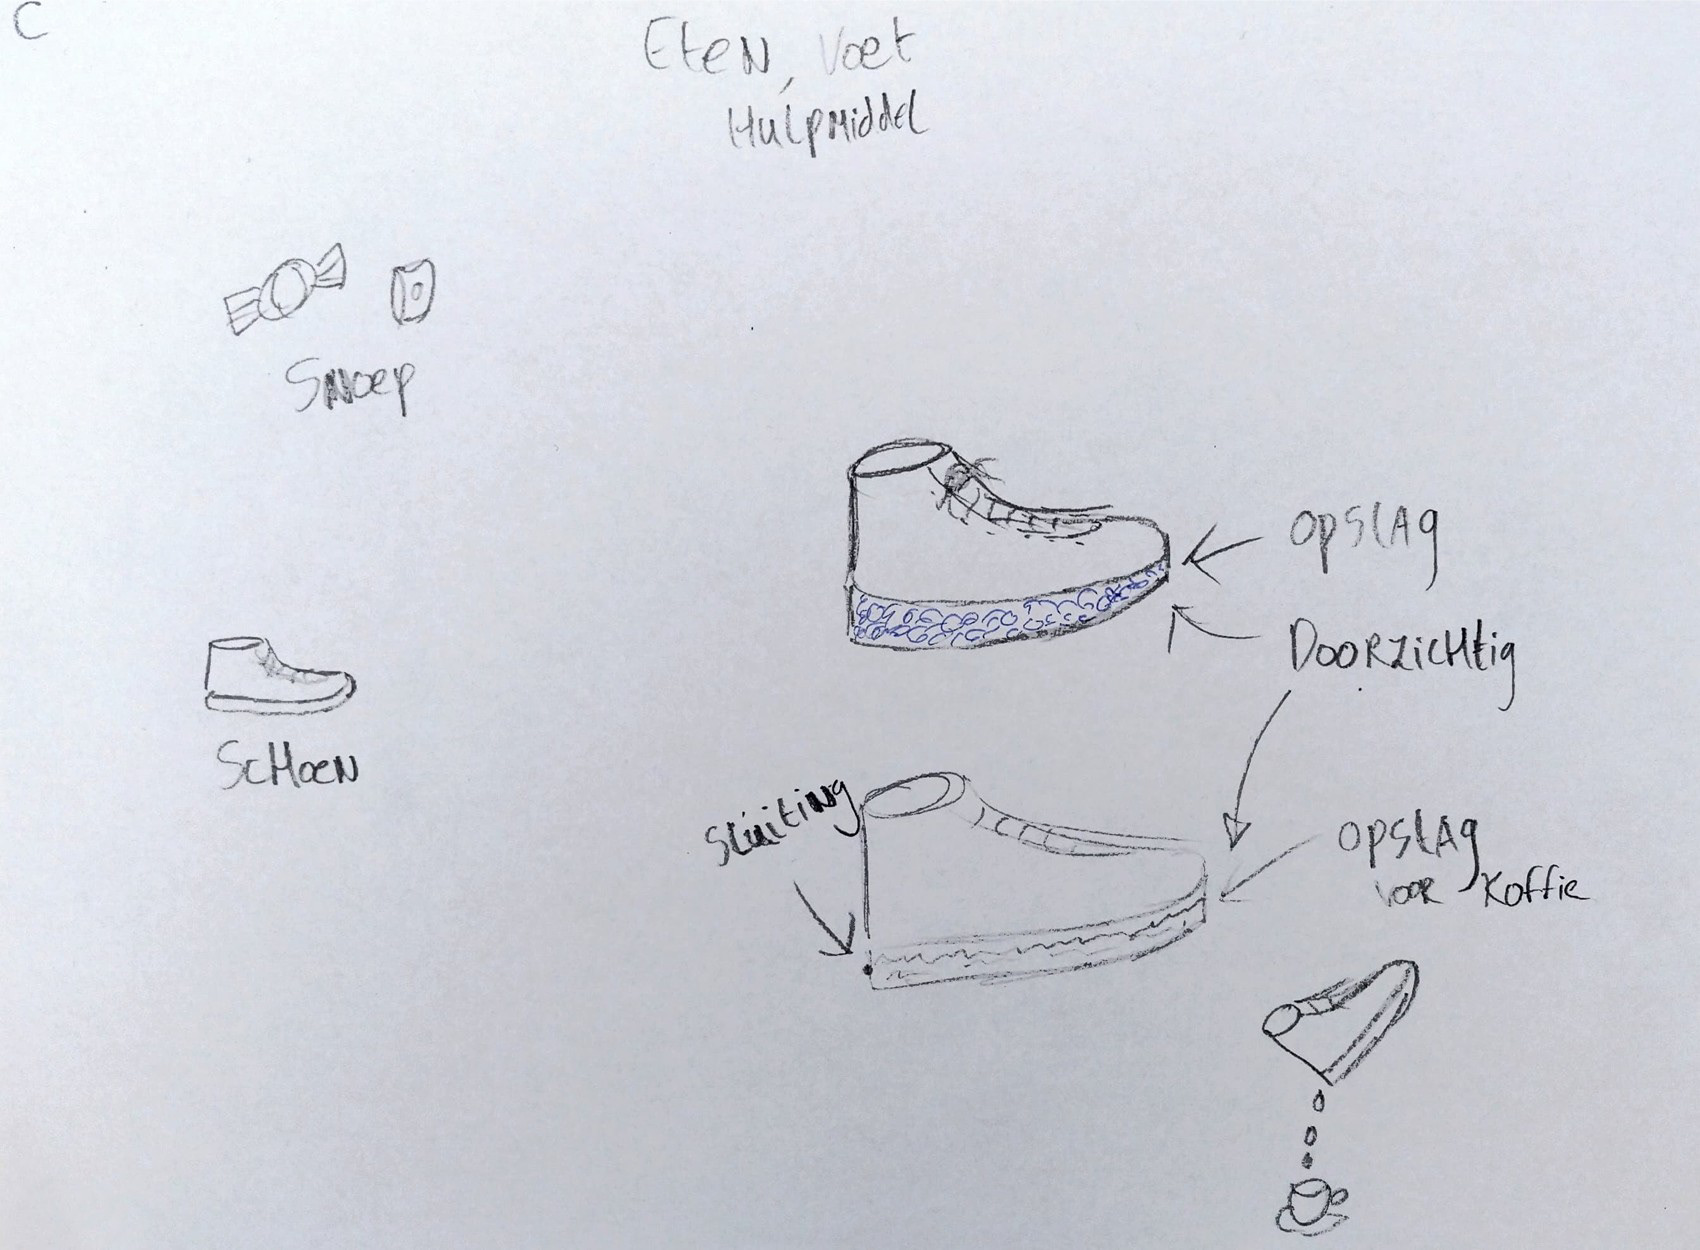 C
Eten, Voet
Hulpmiddel
Snoep
Opslag
Doorzichtig
Schoen
Sluiting
Opslag
voor Koffie